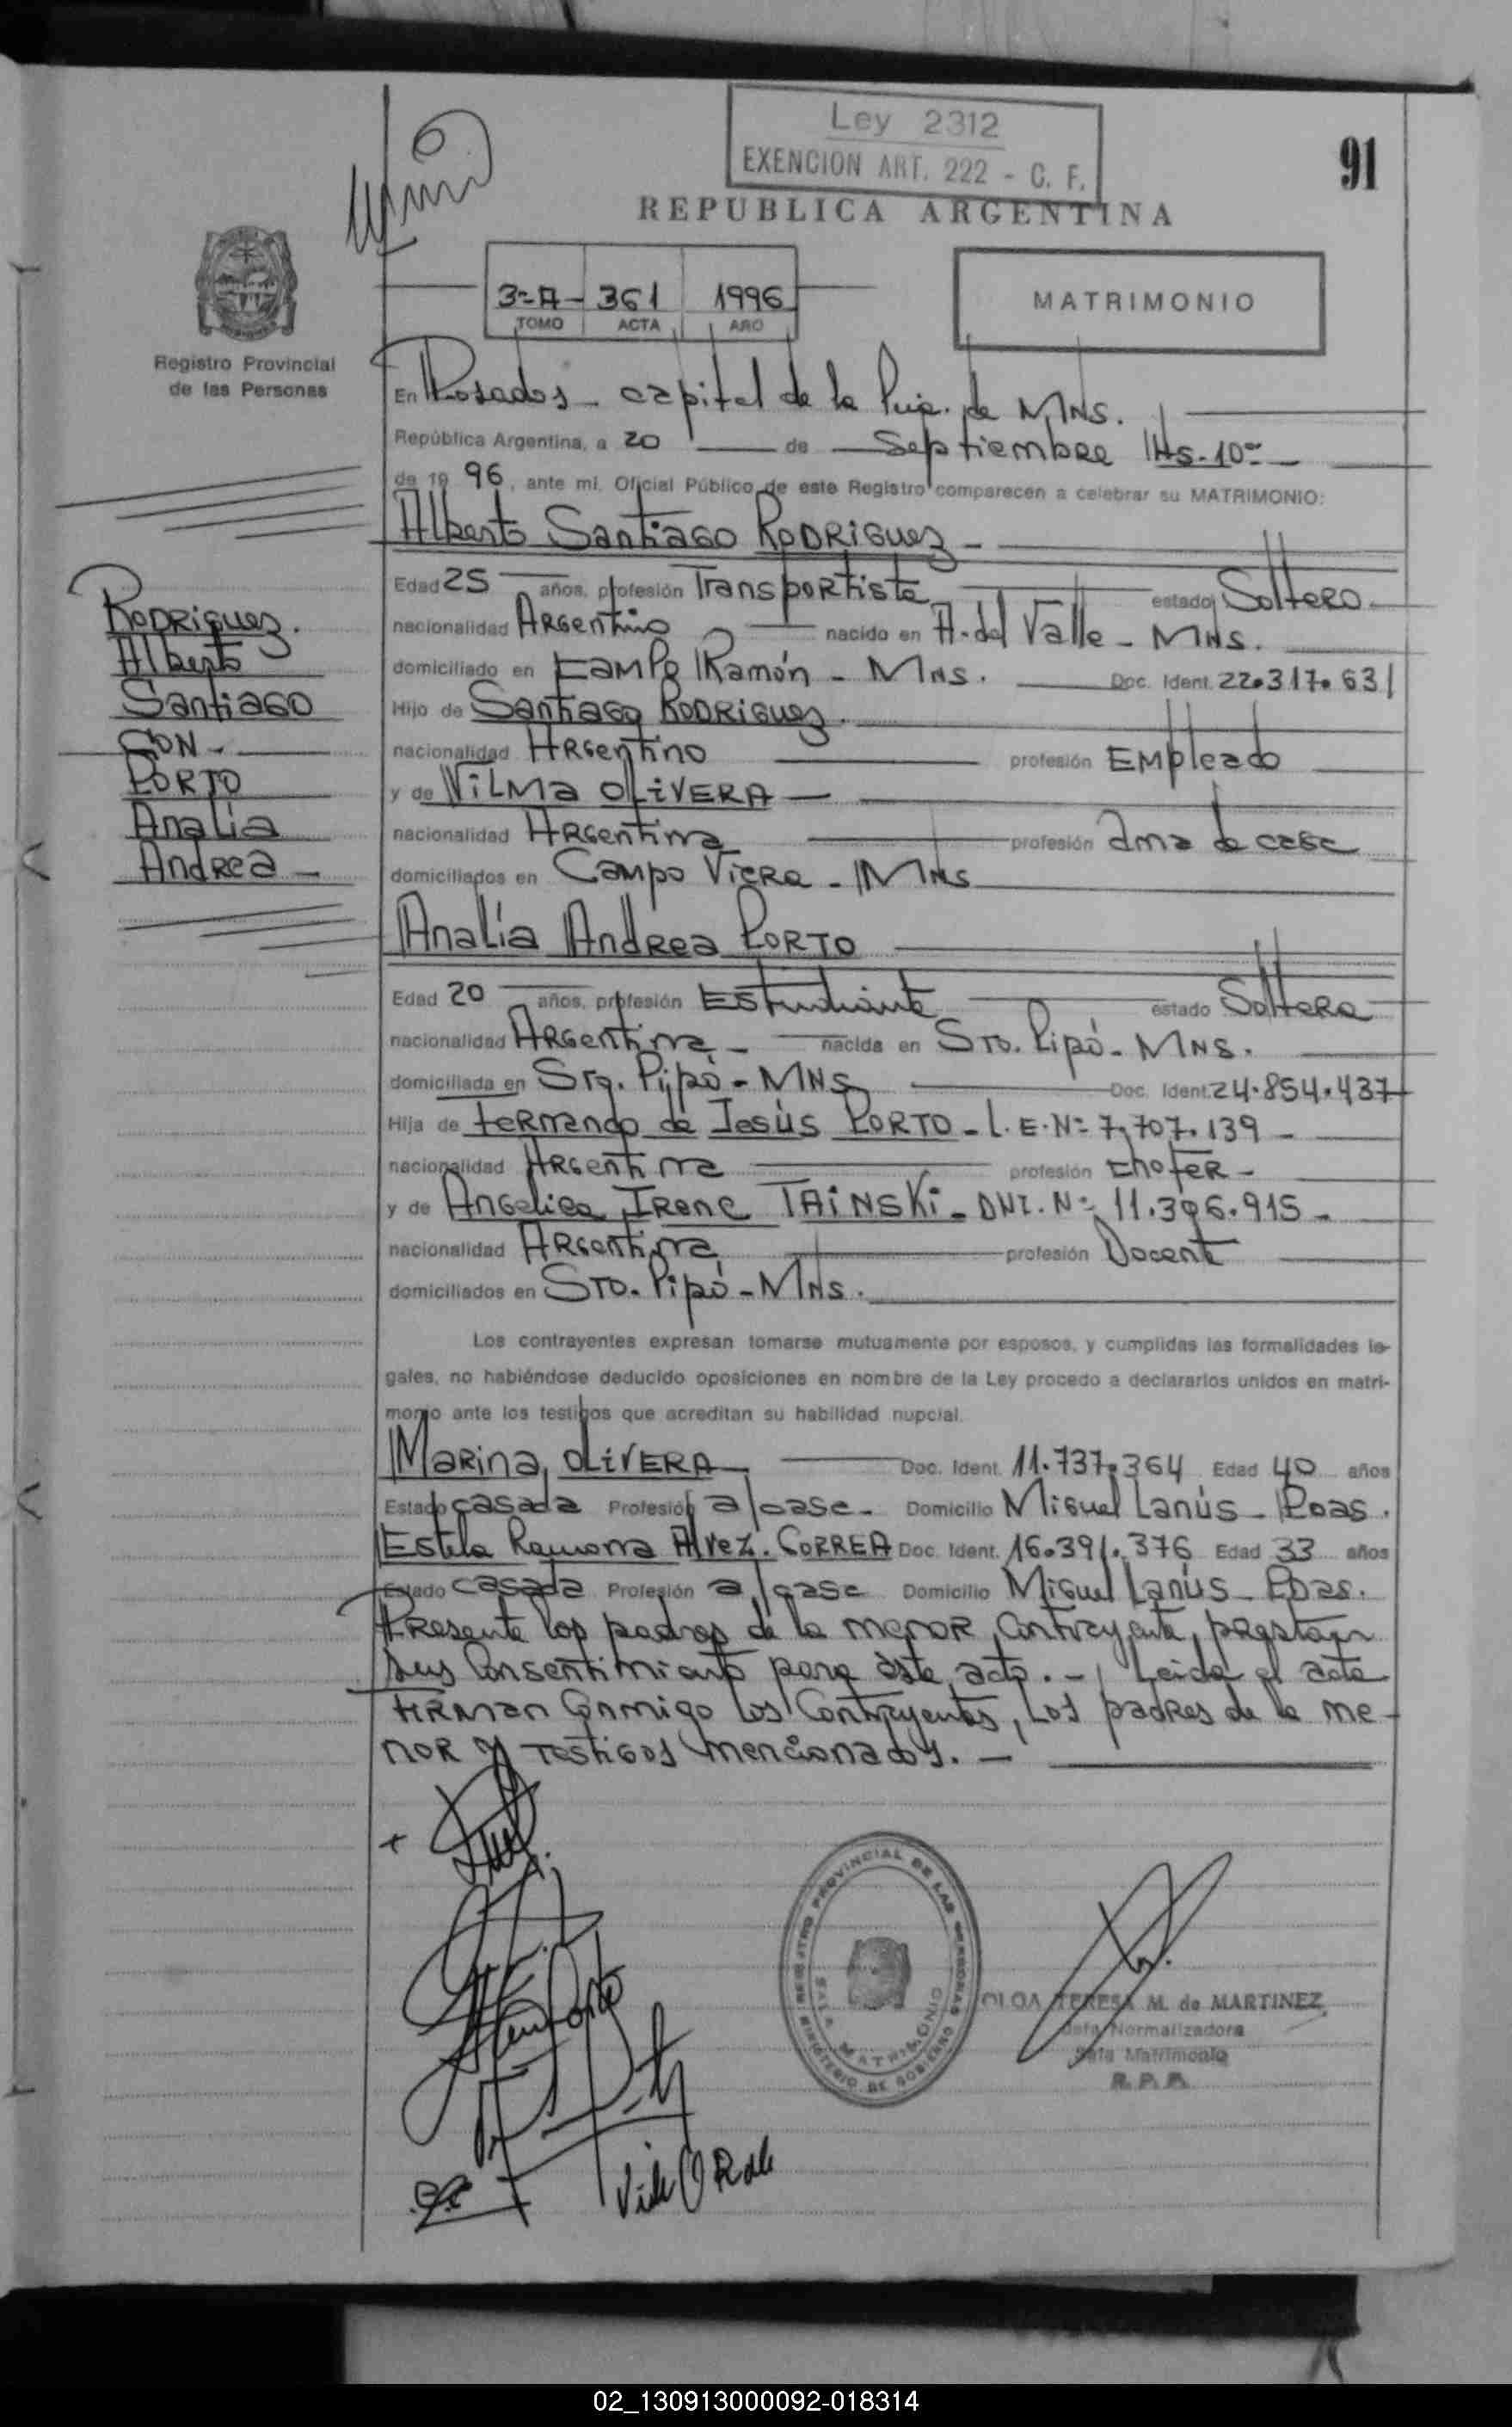 Ley 2312
EXENCION ART. 222 - C. F.
91
REPUBLICA ARGENTINA
3º-A- 361 1996
TOMO ACTA AÑO
MATRIMONIO
Registro Provincial
de las Personas
En Posadas - capital de la Pcia. de MNS.
República Argentina, a 20 de Septiembre Hs. 10
de 19 96, ante mí, Oficial Público de este Registro comparecen a celebrar su MATRIMONIO:
Alberto Santiago RODRIGUEZ -
Edad 25 años, profesión Transportista estado Soltero
nacionalidad Argentino nacido en A. del Valle - MNS.
domiciliado en Campo Ramón - MNS. Doc. Ident. 22.317.631
Hijo de Santiago RODRIGUEZ.
nacionalidad Argentino profesión Empleado
y de Vilma OLIVERA -
nacionalidad Argentina profesión ama de casa
domiciliados en Campo Viera - MNS
Rodriguez.
Alberto
Santiago
CON -
PORTO
Analia
Andrea -
Analía Andrea PORTO
Edad 20 años, profesión Estudiante estado Soltera
nacionalidad Argentina - nacida en Sto. Pipó - MNS.
domiciliada en Sto. Pipó - MNS Doc. Ident. 24.854.437
Hija de Fernando de Jesús PORTO - L.E. Nº 7.707.139 -
nacionalidad Argentina profesión Chofer -
y de Angelica Irene TAINSKI - DNI. Nº 11.396.915 -
nacionalidad Argentina profesión Docente
domiciliados en Sto. Pipó - MNS.
Los contrayentes expresan tomarse mutuamente por esposos, y cumplidas las formalidades le-
gales, no habiéndose deducido oposiciones en nombre de la Ley procedo a declararlos unidos en matri-
monio ante los testigos que acreditan su habilidad nupcial.
Marina OLIVERA Doc. Ident. 11.737.364 Edad 40 años
Estado casada Profesión a/casa - Domicilio Miguel Lanús - Pdas.
Estela Ramona Alvez. CORREA Doc. Ident. 16.391.376 Edad 33 años
Estado casada Profesión a/casa Domicilio Miguel Lanús - Pdas.
Presente los padres de la menor contrayente, prestan
sus consentimiento para éste acto. - Leida el acta
FIRMAN conmigo los contrayentes, los padres de la me-
nor y testigos mencionados. -
REGISTRO PROVINCIAL DE LAS PERSONAS
MINISTERIO DE GOBIERNO
SALA MATRIMONIO
OLGA TERESA M. de MARTINEZ
Jefa Normalizadora
Sala Matrimonio
R. P. P.
02_130913000092-018314